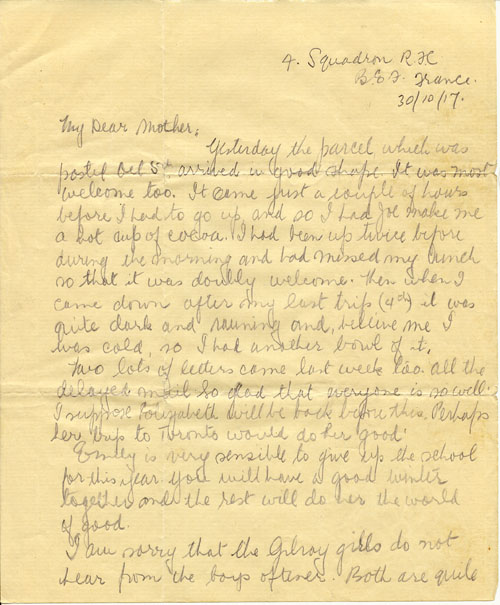 4. Squadron R.F.C
B.E.F. France.
30/10/17.
My Dear Mother,
Yesterday the parcel which was
posted Oct 5th arrived in good shape. It was most
welcome too. It came just a couple of hours
before I had to go up, and so I had Joe make me
a hot cup of cocoa. I had been up twice before
during the morning and had missed my lunch
so that it was doubly welcome. Then when I
came down after my last trip (4th) it was
quite dark and raining and, believe me I
was cold, so I had another bowl of it.
Two lots of letters came last week too. all the
delayed mail. So glad that everyone is so well.
I suppose Elizabeth will be back before this. Perhaps
her trip to Toronto would do her good.
Emily is very sensible to give up the school
for this year. You will have a good winter
together and the rest will do her the world
of good.
I am sorry that the Gilroy girls do not
hear from the boys oftener. Both are quite